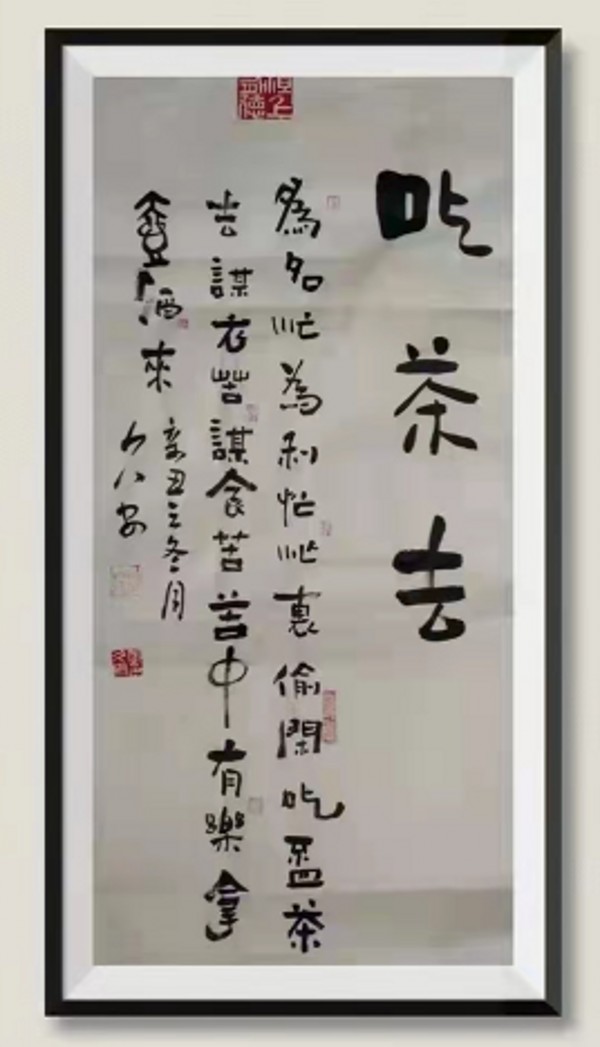 吃茶去
為名忙為利忙忙裏偷閑吃盃茶
去謀衣苦謀食苦苦中有樂拿
壺酒來
辛丑之冬月